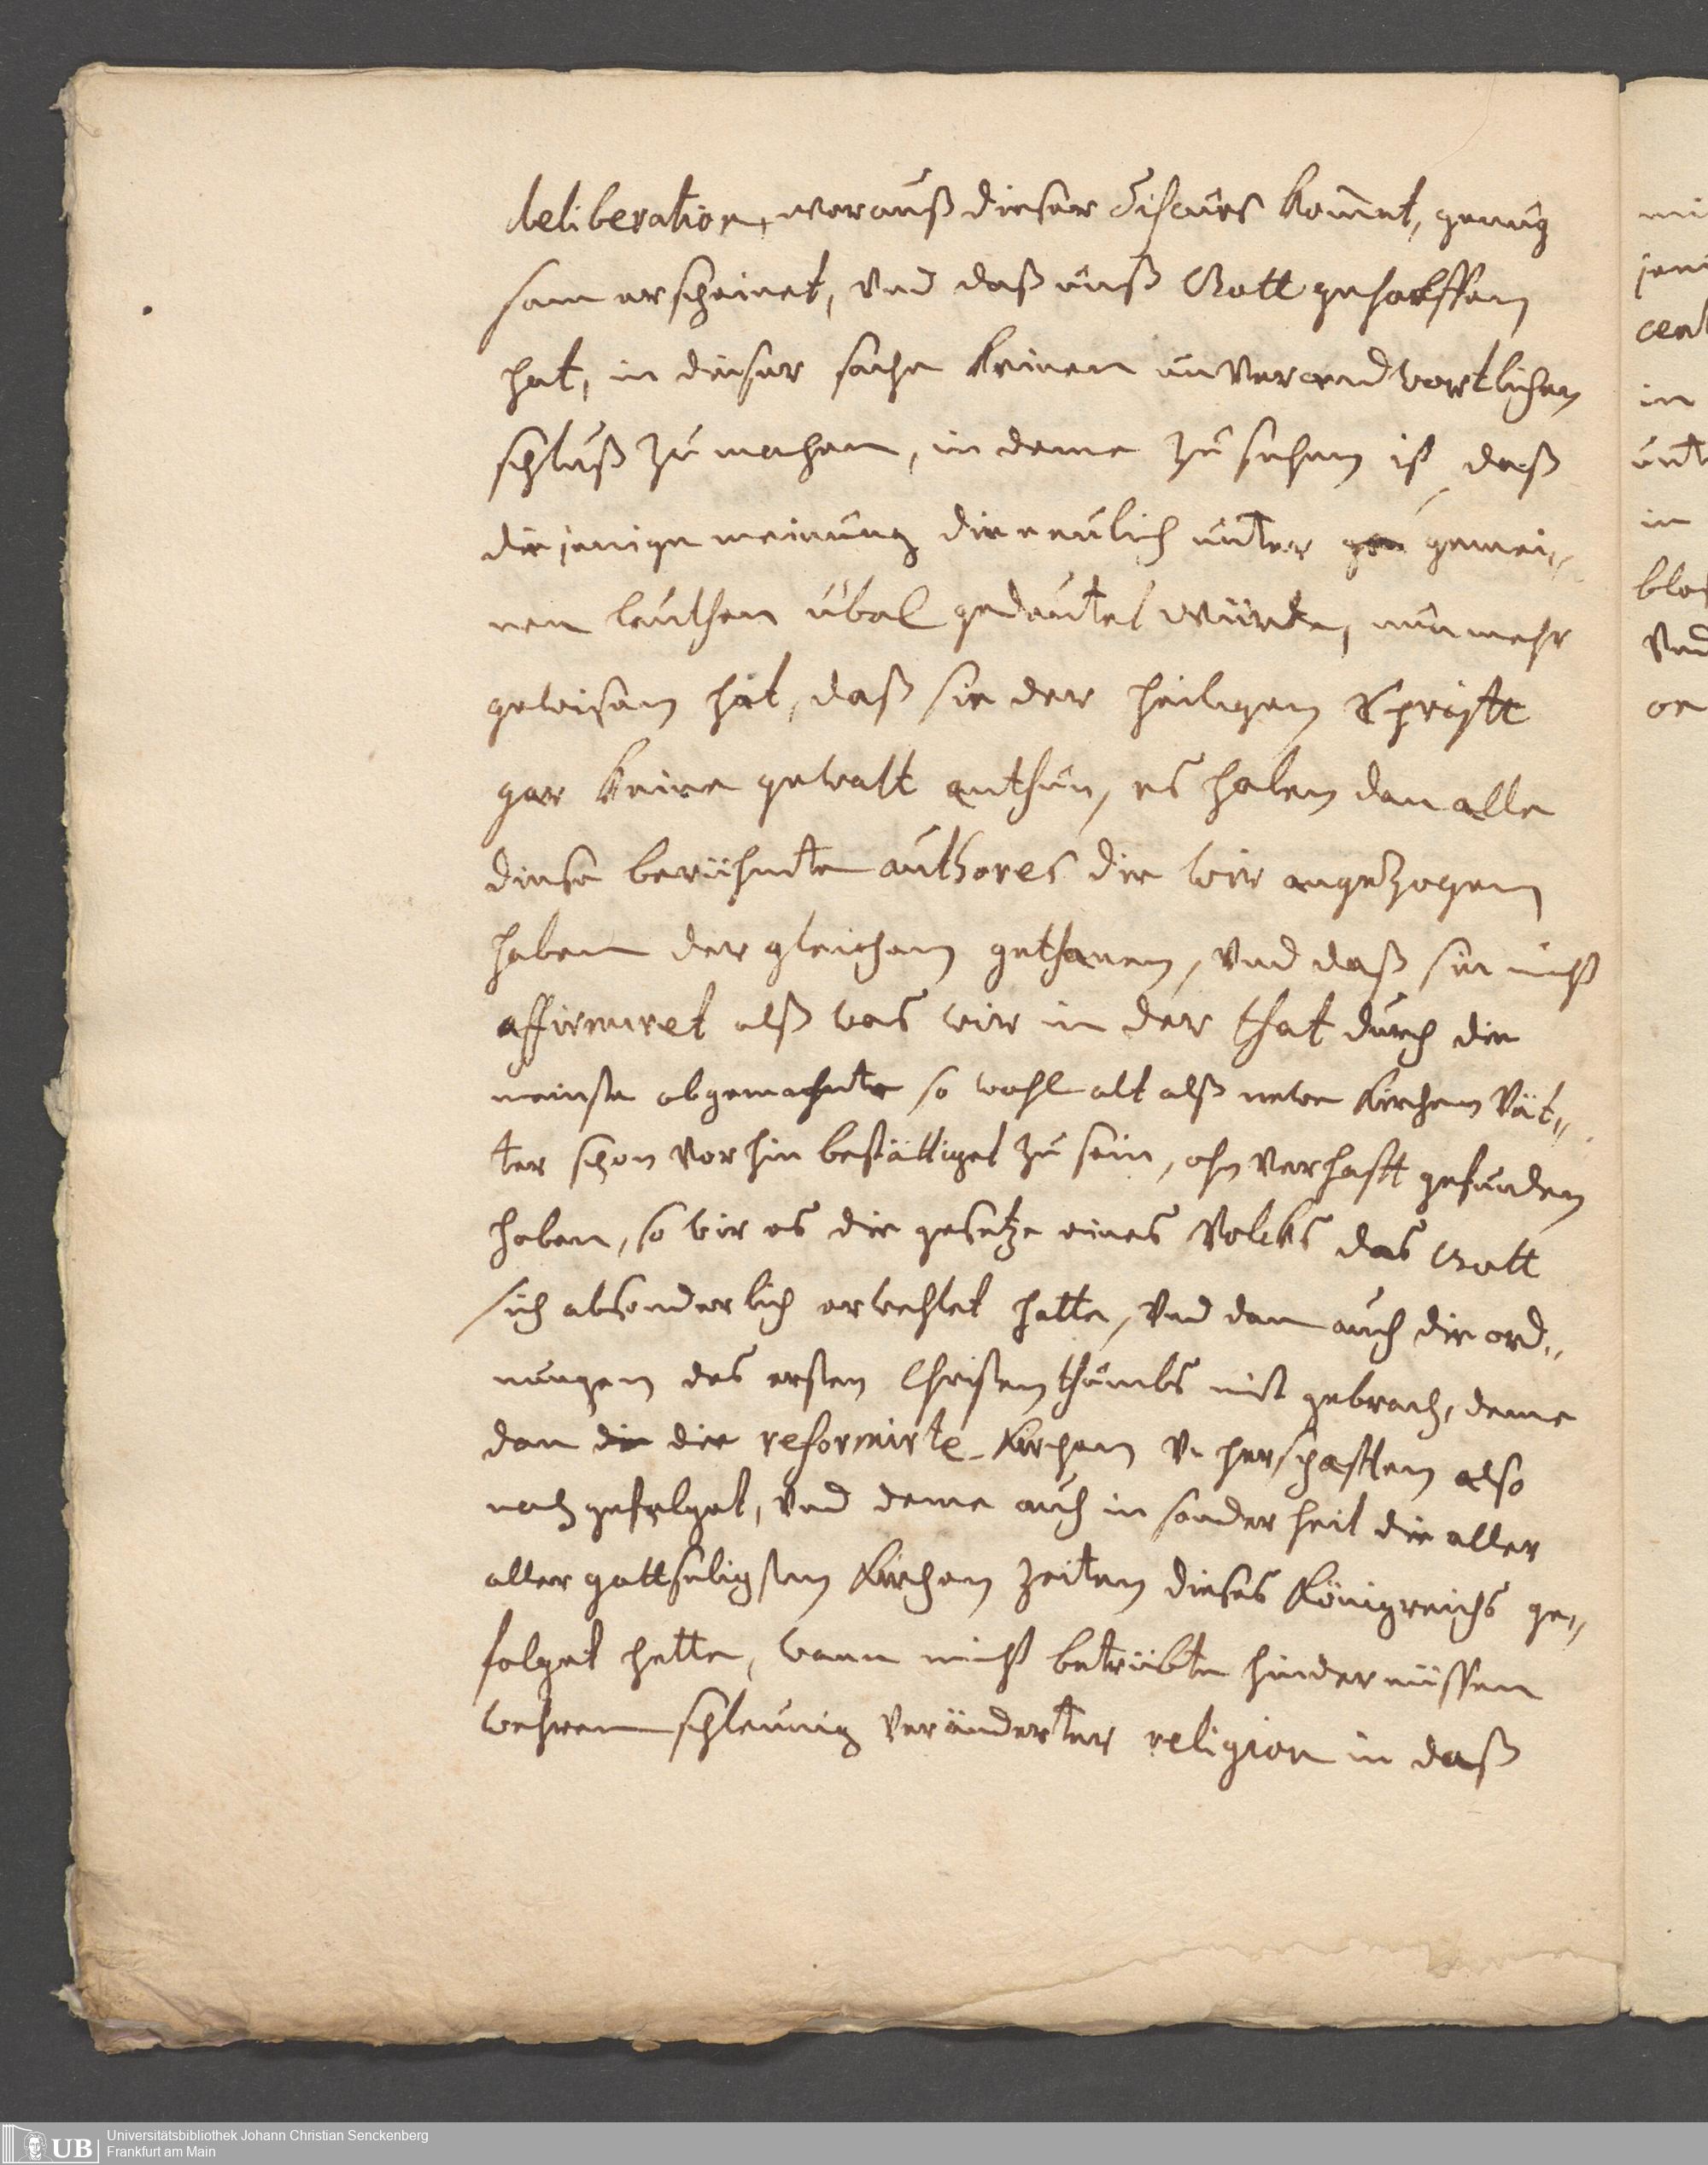 deliberation, worauß dieser Discurs kom̄et, genug
sam erscheinet, Vnd daß unß Gott geholffen
hat, in dieser sache keinen unverandwortlichen
schluß zu machen, in deme zu sehen ist, daß
diejenige meinung die neulich unter gemei„
nen leuthen übel gedeutet würde, nunmehr
gewisen hat, daß sie der heiligen Schrifft
gar keine gewalt anthun, es haben dan alle
diese berühmten authores die wir angezogen
haben der gleichen gethanen, Vnd daß sie nicht
affirmiret alß was wir in der that durch die
meinste so wohl alt alß newe Kirchen Vät„
ter schon vorhin bestättiget zu sein, gefunden
haben, so wir es die gesetze eines Volcks das Gott
sich absonderlich erwehlet hatte, Vnd dan auch die ord„
nungen des ersten Christenthumbs mit gebrach, deme
dan die die reformirte Kirchen V. herschafften also
nach gefolget, Vnd deme auch in sonderheit die aller
aller gottseligsten Kirchen Zeiten dieses Königreichs ge„
folget hette, wann nicht betrübte hindernüssen
wehren schleunig veränderter religion in daß
mi
jeni
cent
in
unt
in
blos
Vnd
on
UB Universitätsbibliothek Johann Christian Senckenberg
Frankfurt am Main